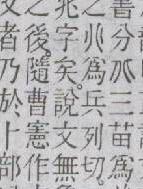 書分𠔁三苗爲
之𠔁爲兵列切
兆字矣說文無
之後隨曹憲作
者乃於卜部